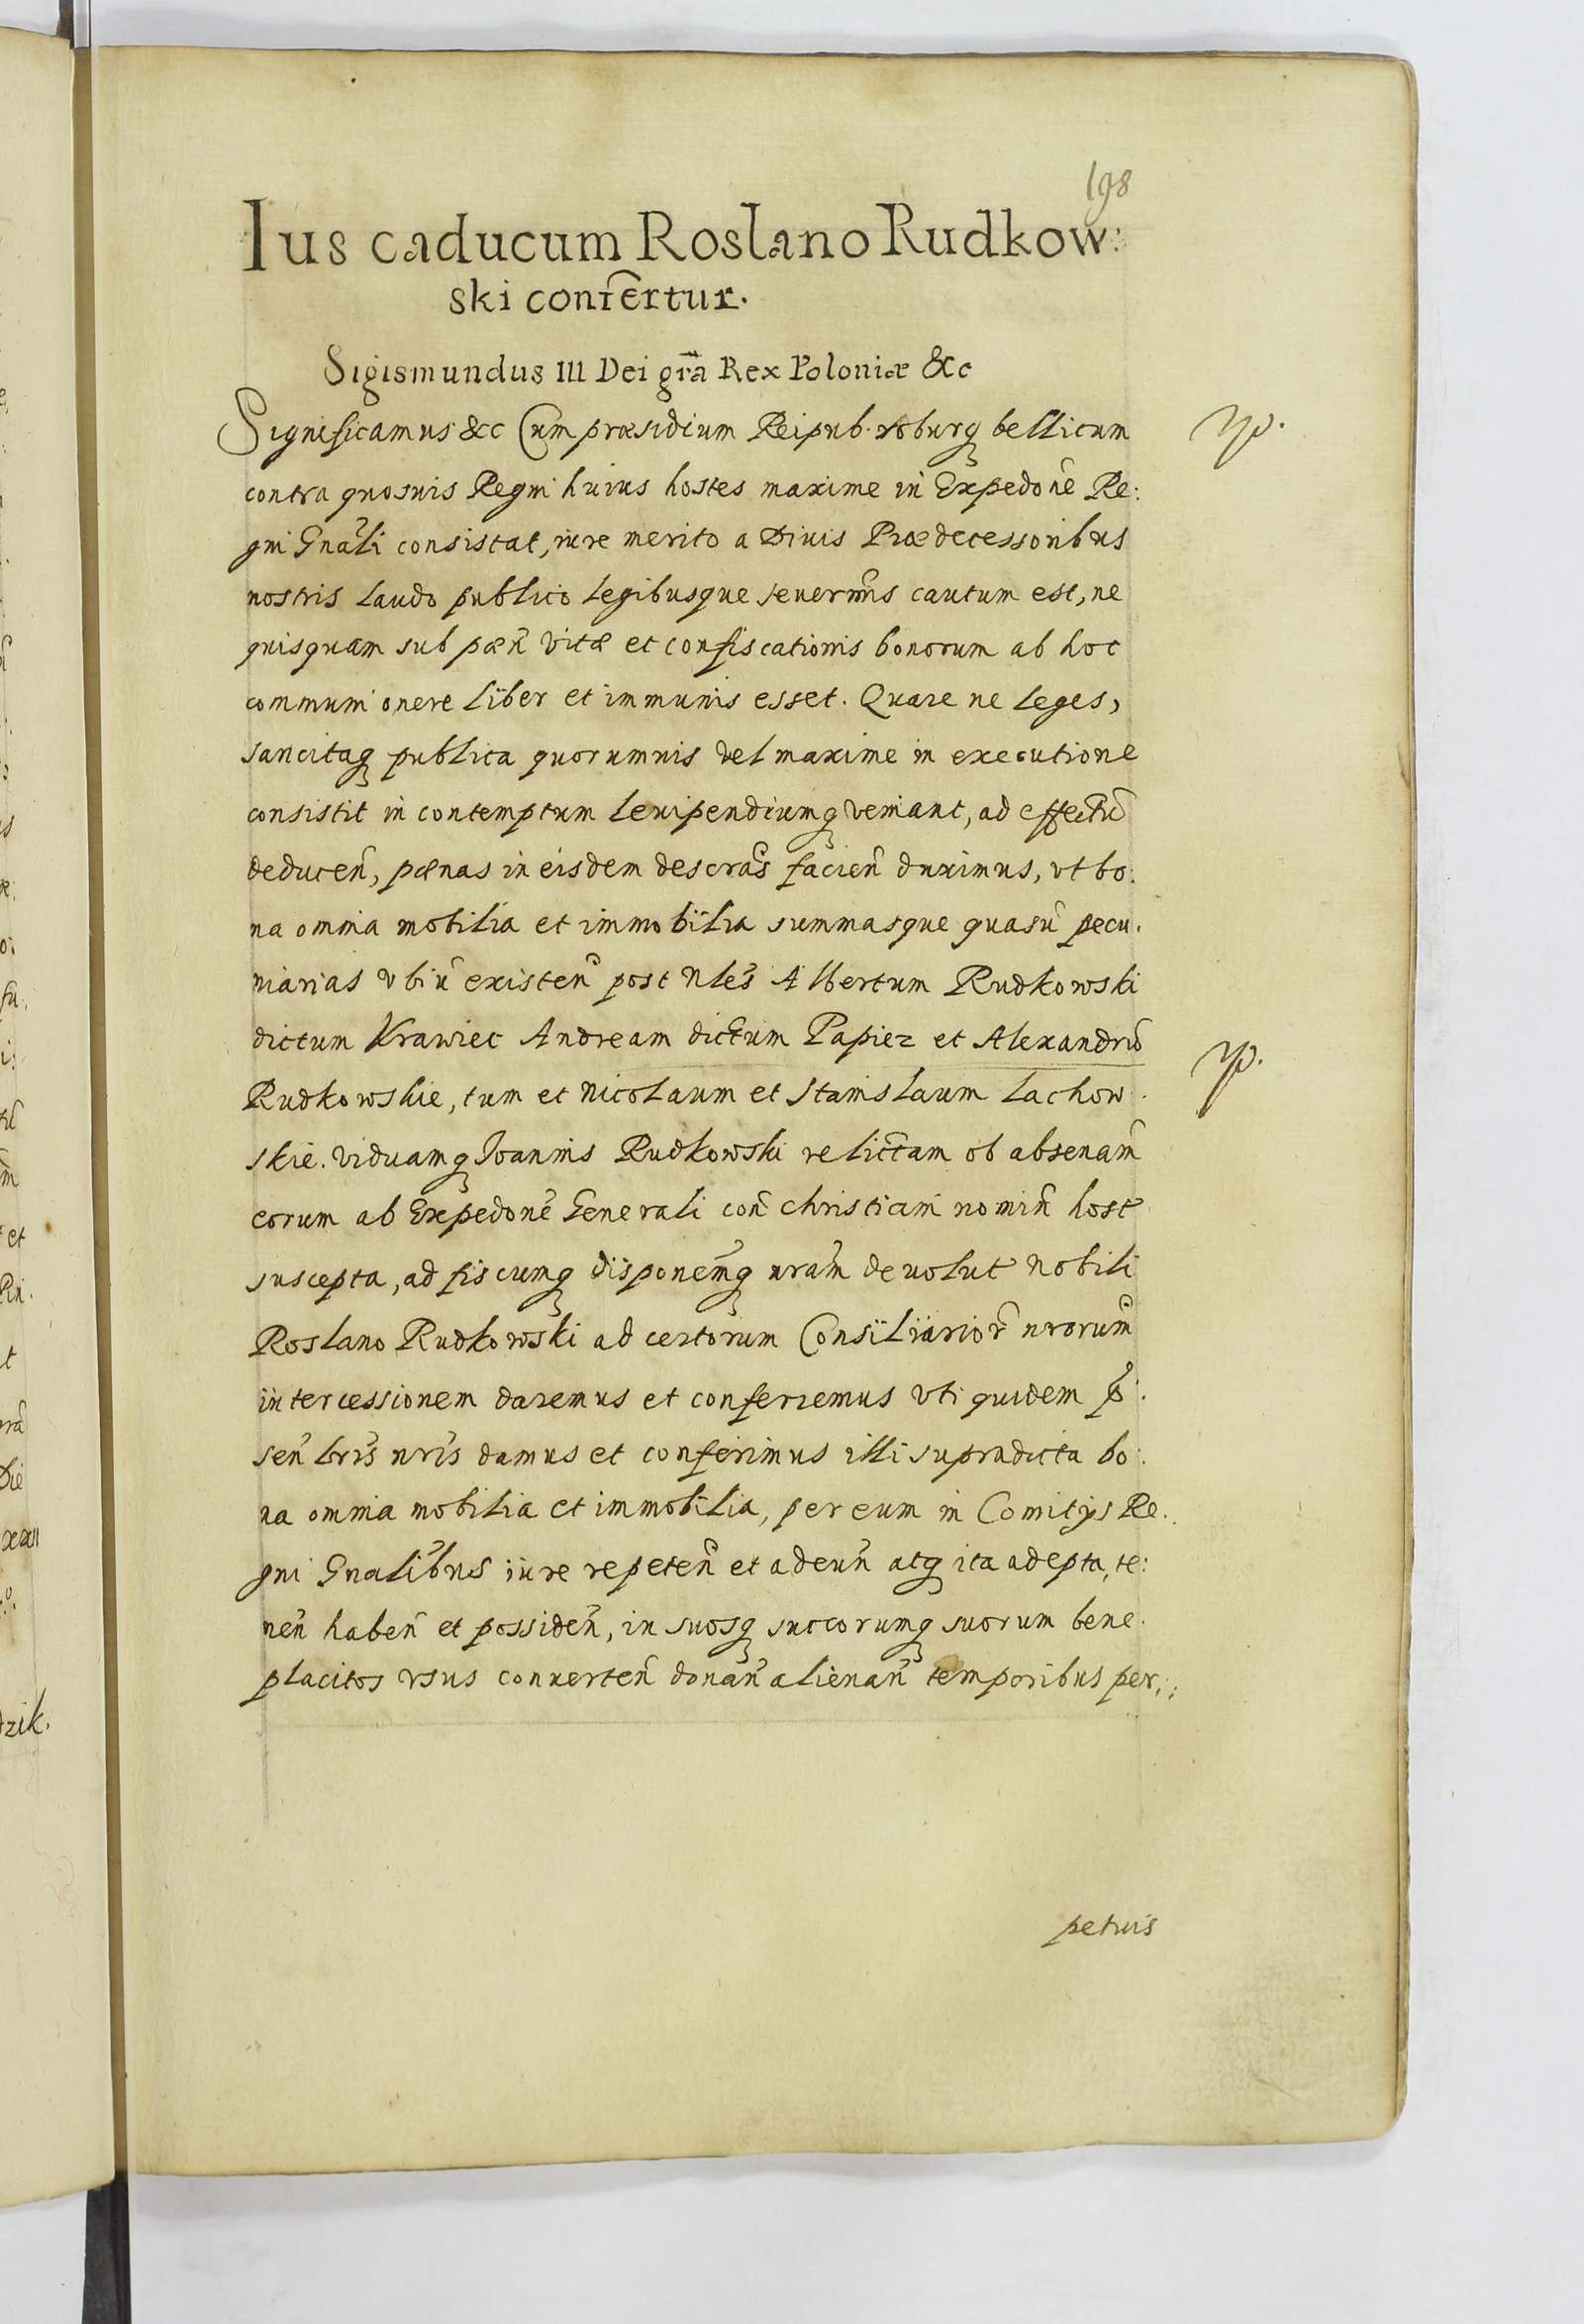 198
Ius caducum Roslano Rudkow:
ski confertur.
Sigismundus III Dei gr̃a Rex Poloniæ &c
Significamus &c Cum præsidium Reipub. roburq bellicum
contra quosuis Regni huius hostes maxime in Expedoñe Re:
gni Gnãli consistat, iure merito a Diuis Prædecessoribus
nostris laudo publico legibusque seuerim̃s cautum est, ne
quisquam sub pœñ vitæ et confiscationis bonorum ab hoc
communi onere liber et immunis esset. Quare ne leges,
sancitaq publica quorumuis vel maxime in executione
consistit in contemptum leuipendiumq veniant, ad effectũ
deduceñ, pœnas in eisdem descrãs facieñ duximus, vt bo:
na omnia mobilia et immobilia summasque quasũ pecu.
niarias vbiũ existeñ post Nlẽs Albertum Rudkowski
dictum Krawiec Andream dictum Papiez et Alexandrũ
Rudkowskie, tum et Nicolaum et Stanislaum Lachow.
skie. viduamq Ioannis Rudkowski relictam ob absenam̃
eorum ab Expedonẽ Generali coñ christiani nomiñ host
suscepta, ad fiscumq disponem̃q nram̃ deuolut nobili
Roslano Rudkowski ad certorum Consiliarior̃ nrorum̃
intercessionem daremus et conferremus vti quidem p̃:
señ lrĩs nrĩs damus et conferimus illi supradicta bo:
na omnia mobilia et immobilia, per eum in Comitijs Re.
gni Gnalĩbus iure repeteñ et adeuñ atq ita adepta, te:
neñ habeñ et possideñ, in suosq succorumq suorum bene.
placitos vsus conuerteñ donañ alienañ temporibus per:
petuis